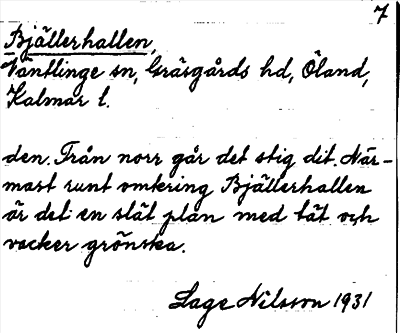 7
Bjällerhallen,
Ventlinge sn, Gräsgårds hd, Öland,
Kalmar l.
den. Från norr går det stig dit. När-
mast runt omkring Bjällerhallen
är det en slät plan med tät och
vacker grönska.
Lage Nilsson 1931